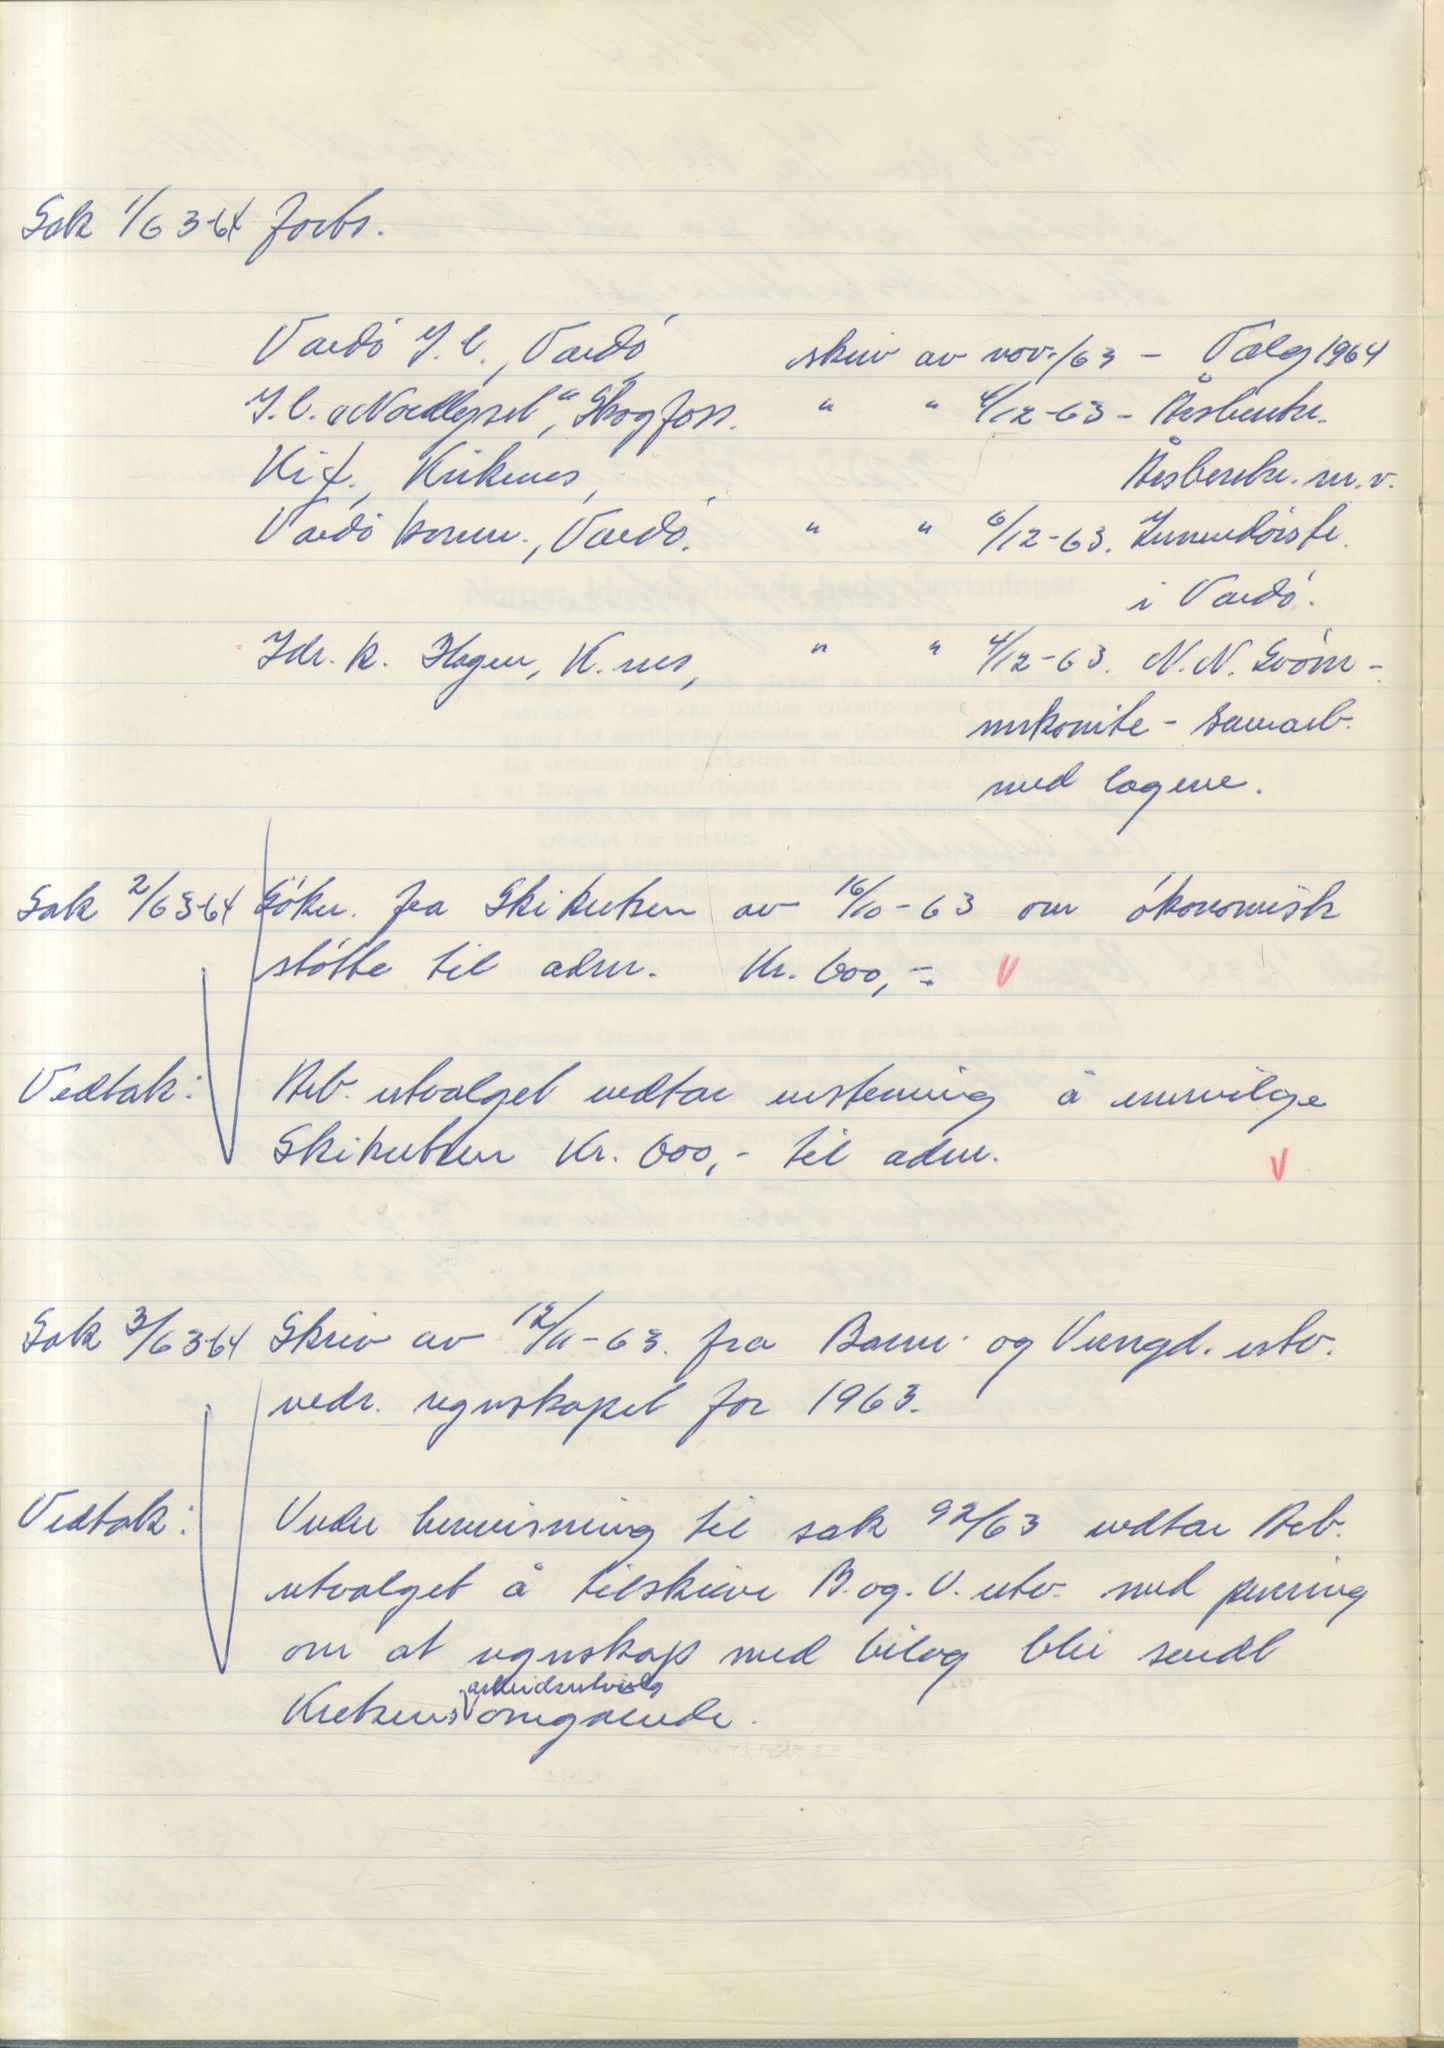 Sak 1/63-64 forts.
Vardö I.l., Vardö, skriv av nov./63 - Valg 1964
I.l. "Nordlyset", Skogfoss. " " 4/12-63 - Årsberetn.
Kif., Kirkenes, Årsberetn. m.v.
Vardö komm., Vardö. " " 6/12-63. Innendörsh.
i Vardö.
Idr. k. Hagen, K.nes, " " 4/12-63. N.N. Svöm-
mekomite - samarb.
med lagene.
Sak 2/63-64 Sökn. fra Skikretsen av 16/10-63 om ökonomisk
stötte til adm. Kr. 600,-. V
Vedtak: Arb. utvalget vedtar enstemmig å innvilge
Skikretsen Kr. 600,- til adm. V
Sak 3/63-64 Skriv av 12/11-63. fra Barne- og Ungd. utv.
vedr. regnskapet for 1963.
Vedtak: Under henvisning til sak 92/63 vedtar Arb.
utvalget å tilskrive B. og. U. utv. med purring
om at regnskap med bilag blir sendt
arbeidsutvalg
Kretsens omgående.